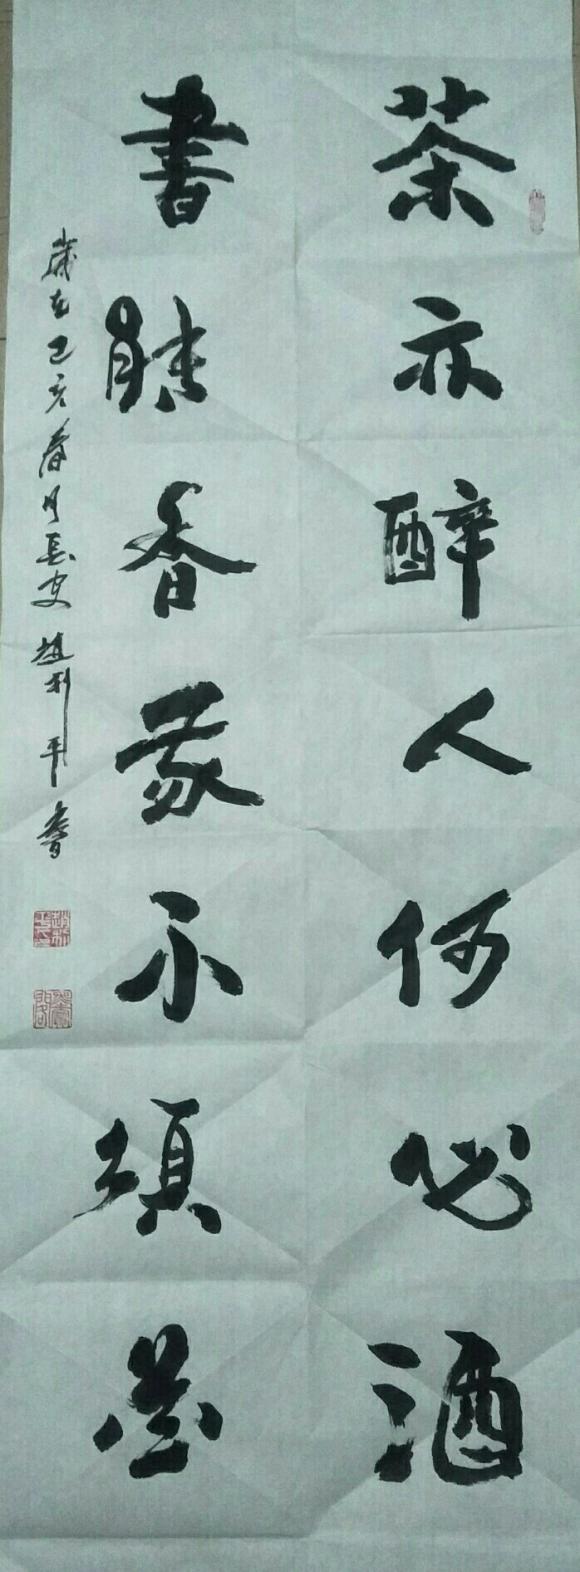 茶亦醉人何必酒
書能香我不須
歲在己亥春月長安趙利平書